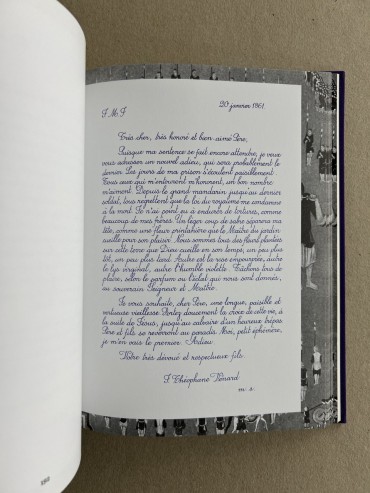 J. M. J. 20 janvier 1861.
Très cher, très honoré et bien-aimé Père,
Puisque ma sentence se fait encore attendre, je veux
vous adresser un nouvel adieu, qui sera probablement le
dernier. Les jours de ma prison s'écoulent paisiblement.
Tous ceux qui m'entourent m'honorent, un bon nombre
m'aiment. Depuis le grand mandarin jusqu'au dernier
soldat, tous regrettent que la loi du royaume me condamne
à la mort. Je n'ai point eu à endurer de tortures, comme
beaucoup de mes frères. Un léger coup de sabre séparera ma
tête, comme une fleur printanière que le Maître du jardin
cueille pour son plaisir. Nous sommes tous des fleurs plantées
sur cette terre que Dieu cueille en son temps, un peu plus
tôt, un peu plus tard. Autre est la rose empourprée, autre
le lys virginal, autre l'humble violette. Tâchons tous de
plaire, selon le parfum ou l'éclat qui nous sont donnés,
au souverain Seigneur et Maître.
Je vous souhaite, cher Père, une longue, paisible et
vertueuse vieillesse. Portez doucement la croix de cette vie, à
la suite de Jésus, jusqu'au calvaire d'un heureux trépas.
Père et fils se reverront au paradis. Moi, petit éphémère,
je m'en vais le premier. Adieu.
Votre très dévoué et respectueux fils.
J. Théophane Vénard
m. s.